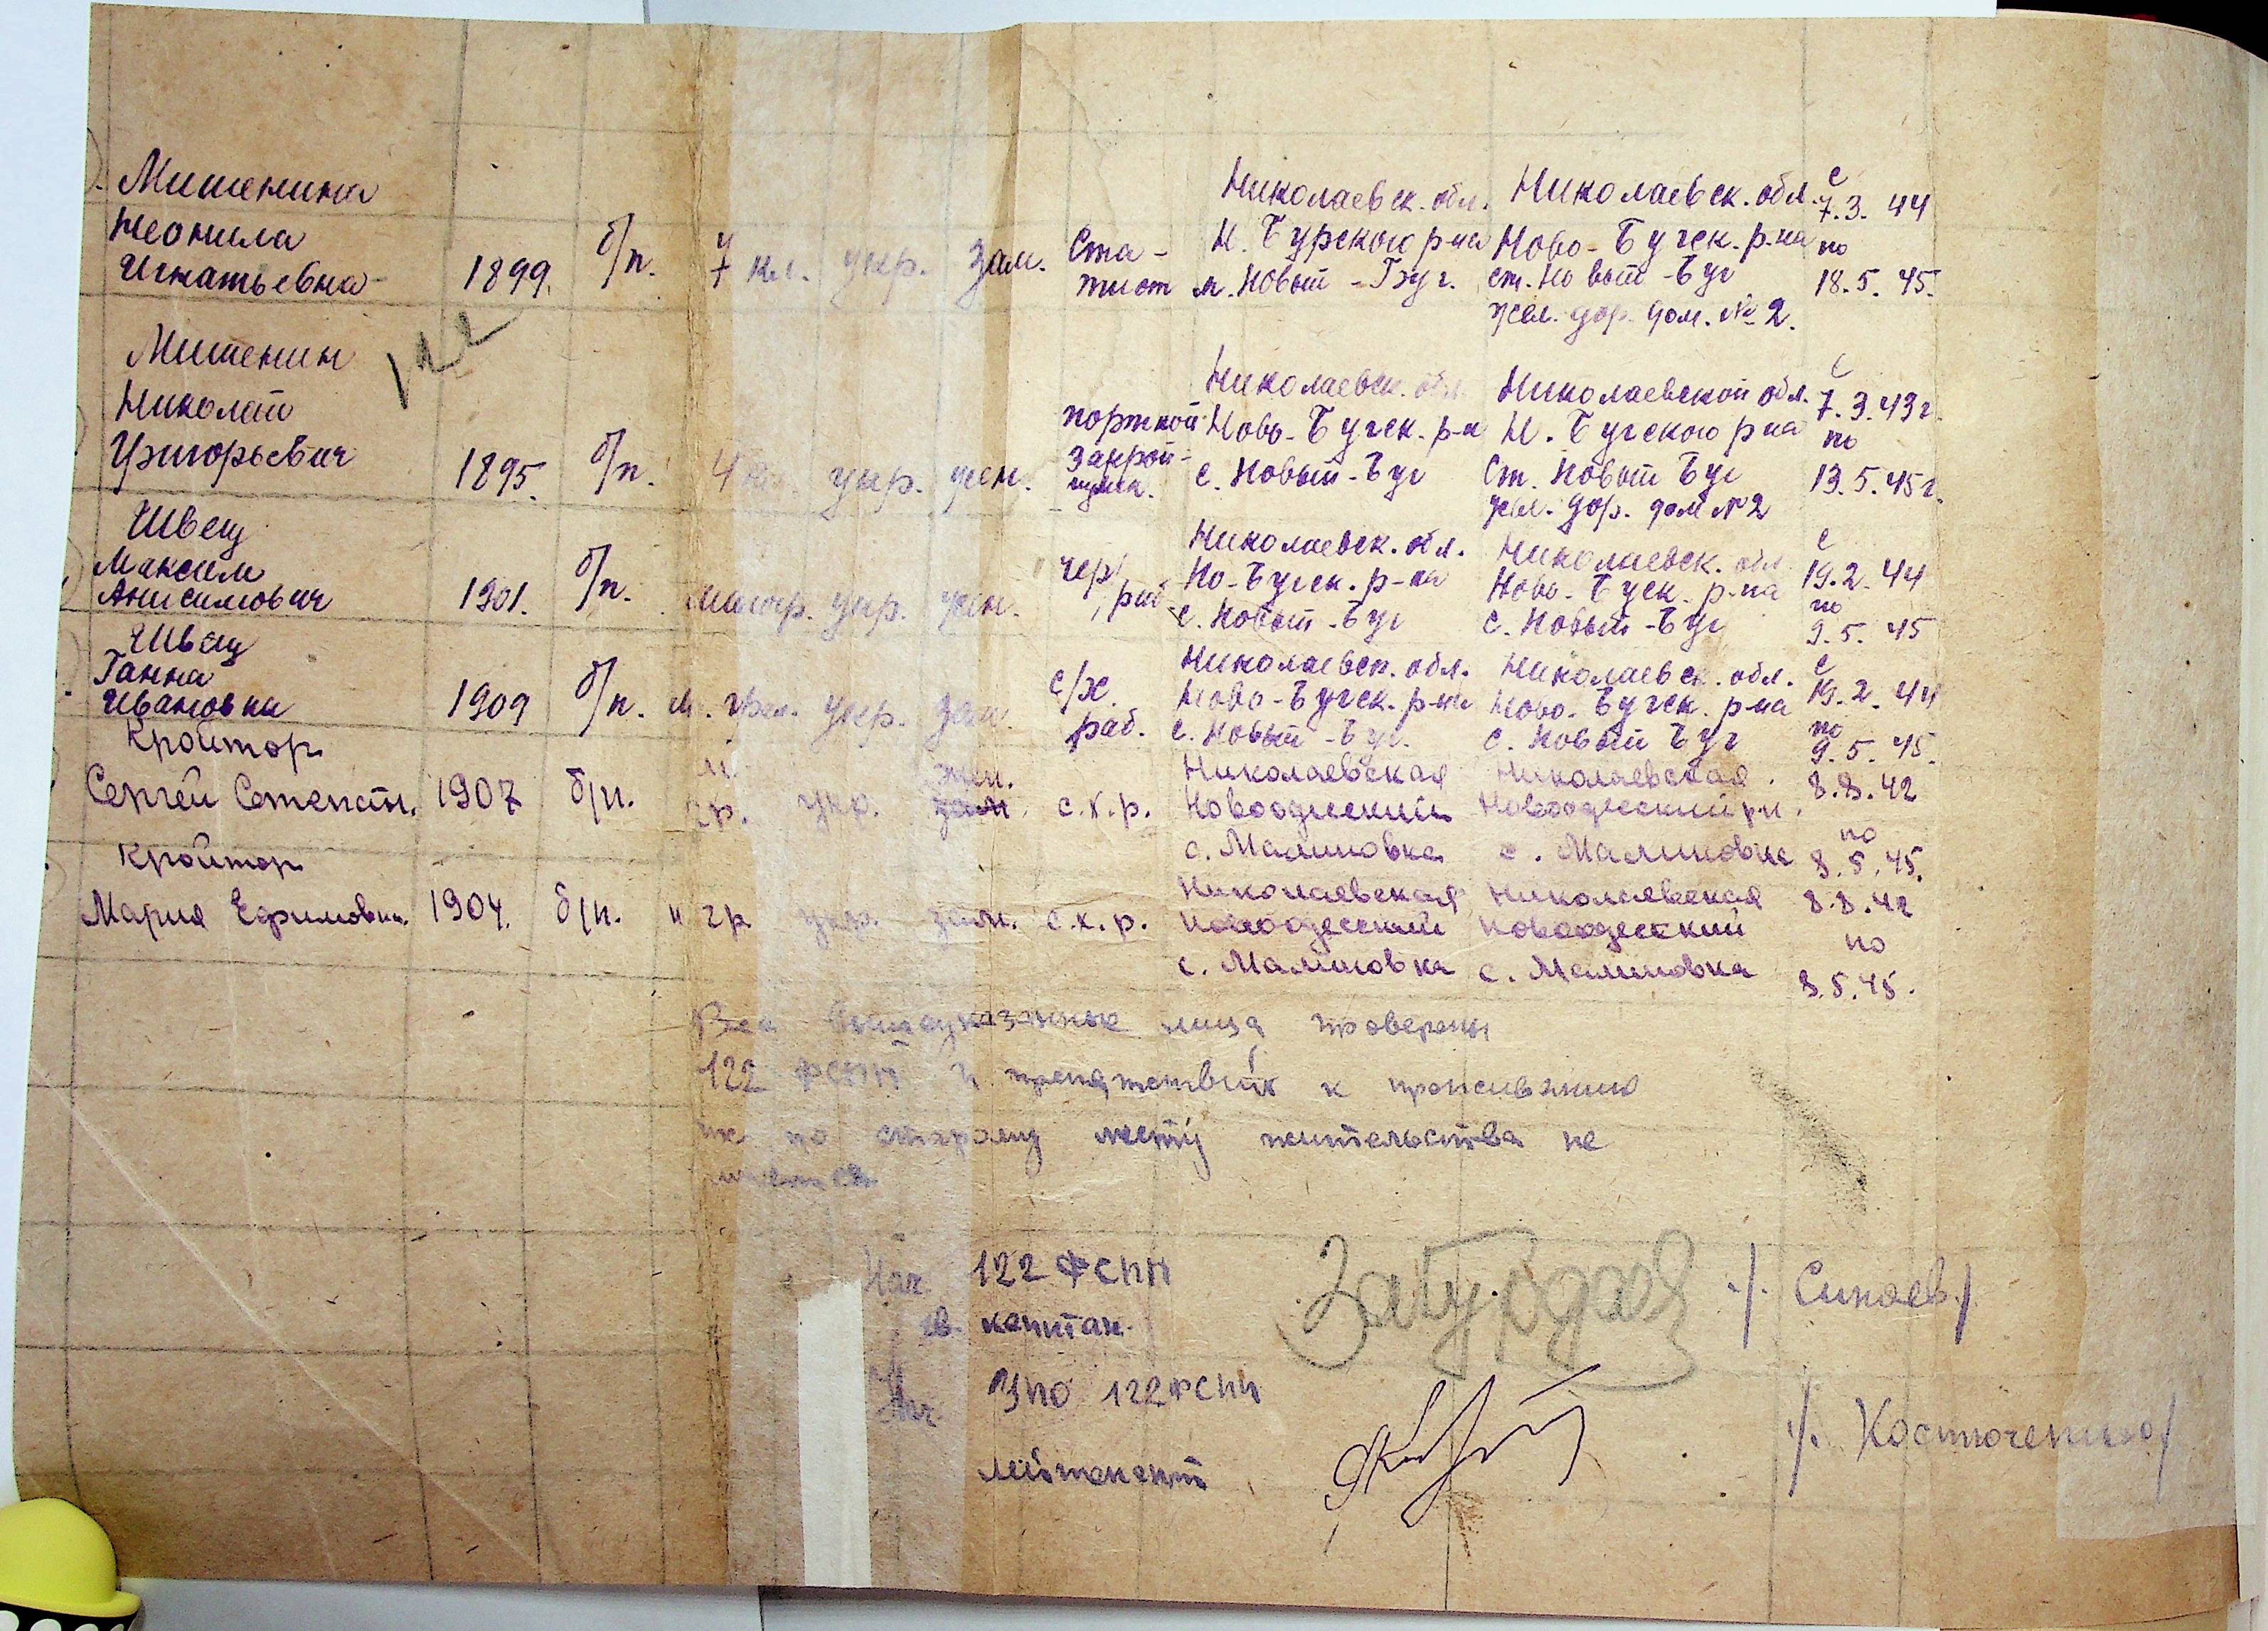 Мишенина
Неонила
Игнатьевна 1899. б/п. 7 кл. укр. зам. Ста-
тист
Николаевск. обл.
Н. Бугского р-на
м. Новый-Буг.
Николаевск. обл.
Ново-Бугск. р-на
ст. Новый-Буг
жел. дор. дом. № 2.
с
7.3.44
по
18.5.45.
Мишенин
Николай
Григорьевич 1895. б/п. 4 кл. укр. жен.
портной
закрой-
щик.
Николаевск. обл.
Ново-Бугск. р-н
с. Новый-Буг
Николаевской обл.
Н. Бугского р-на
Ст. Новый Буг
жел. дор. дом № 2
с
7.3.43 г.
по
13.5.45 г.
Швец
Максим
Анисимович 1901. б/п. малогр. укр. жен.
чер/
раб.
Николаевск. обл.
Но-Бугск. р-на
с. Новый-Буг
Николаевск. обл.
Ново-Буск. р-на
с. Новый-Буг
с
19.2.44
по
9.5.45
Швец
Ганна
Ивановна 1909 б/п. м. грам. укр. зам.
с/х.
раб.
Николаевск. обл.
Ново-Бугск. р-на
с. Новый-Буг.
Николаевск. обл.
Ново-Бугск. р-на
с. Новый Буг
с
19.2.44
по
9.5.45.
Кройтор
Сергей Степан. 1907 б/п. н. гр. укр. жен. с.х.р.
Николаевская
Новоодесский
с. Малиновка
Николаевская
Новоодесский р-н.
с. Малиновка
8.8.42
по
8.5.45.
Кройтор
Мария Ефимовна. 1904. б/п. н гр укр. зам. с.х.р.
Николаевская
Новоодесский
с. Малиновка
Николаевская
Новоодесский
с. Малиновка
8.8.42
по
8.5.45.
Все вышеуказанные лица проверены
122 ФСПП и препятствий к проживанию
их по старому месту жительства не
имеется
Нач. 122 ФСПП
капитан. /Синаев/
Нач. УПО 122 ФСПП
лейтенант /Костюченко/